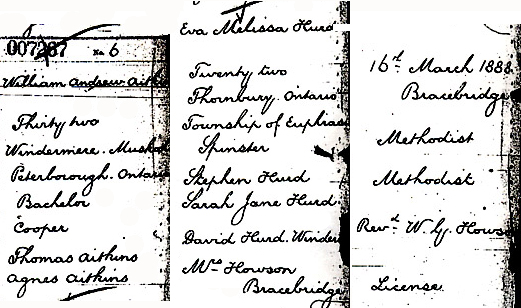 007287 No 6
William Andrew Aitki
Thirty two
Windermere. Musko
Peterborough. Ontario
Bachelor
Cooper
Thomas Aitkins
Agnes Aitkins
Eva Melissa Hurd
Twenty two
Thornbury. Ontario
Township of Euphras
Spinster
Stephen Hurd
Sarah Jane Hurd
David Hurd. Winder
Mrs Howson
Bracebridge
16th March 1888
Bracebridge
Methodist
Methodist
Revd W. G. Howso
License.